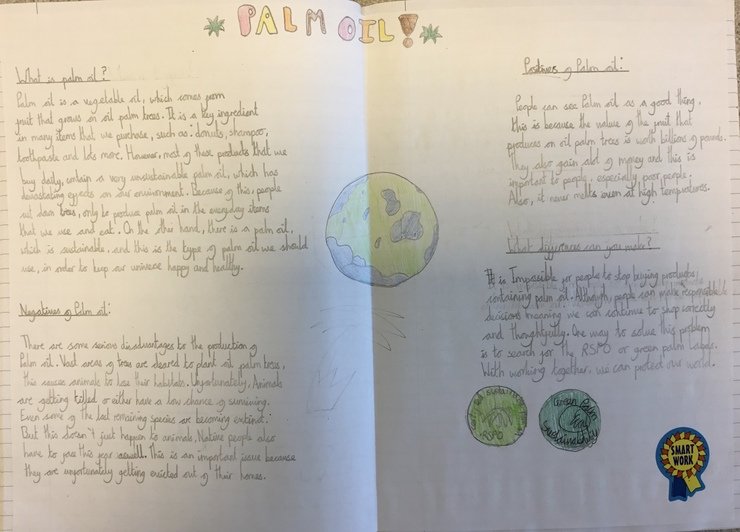 PALM OIL!
What is palm oil?
Palm oil is a vegetable oil, which comes from
fruit that grows in oil palm trees. It is a key ingredient
in many items that we purchase, such as: donuts, shampoo,
toothpaste and lots more. However, most of these products that we
buy daily, contain a very unsustainable palm oil, which has
devastating effects on our environment. Because of this, people
cut down trees, only to produce palm oil in the everyday items
that we use and eat. On the other hand, there is a palm oil,
which is sustainable, and this is the type of palm oil we should
use, in order to keep our universe happy and healthy.
Negatives of Palm oil:
There are some serious disadvantages to the production of
Palm oil. Vast areas of trees are cleared to plant oil palm trees,
this causes animals to lose their habitats. Unfortunately, Animals
are getting killed or either have a low chance of surviving.
Even some of the last remaining species are becoming extinct.
But this doesn't just happen to animals. Native people also
have to face this fear aswell. This is an important issue because
they are unfortunately getting evicted out of their homes.
Positives of Palm oil:
People can see Palm oil as a good thing,
this is because the value of the fruit that
produces on oil palm trees is worth billions of pounds.
They also gain alot of money and this is
important to people, especially poor people.
Also, it never melts even at high tempratures.
What differences can you make?
It is Impossible for people to stop buying products,
containing palm oil. Although, people can make responsible
decisions meaning we can continue to shop correctly
and thoughtfully. One way to solve this problem
is to search for the RSPO or green palm labels.
With working together, we can protect our world.
RSPO
Green Palm
sustainability
SMART
WORK